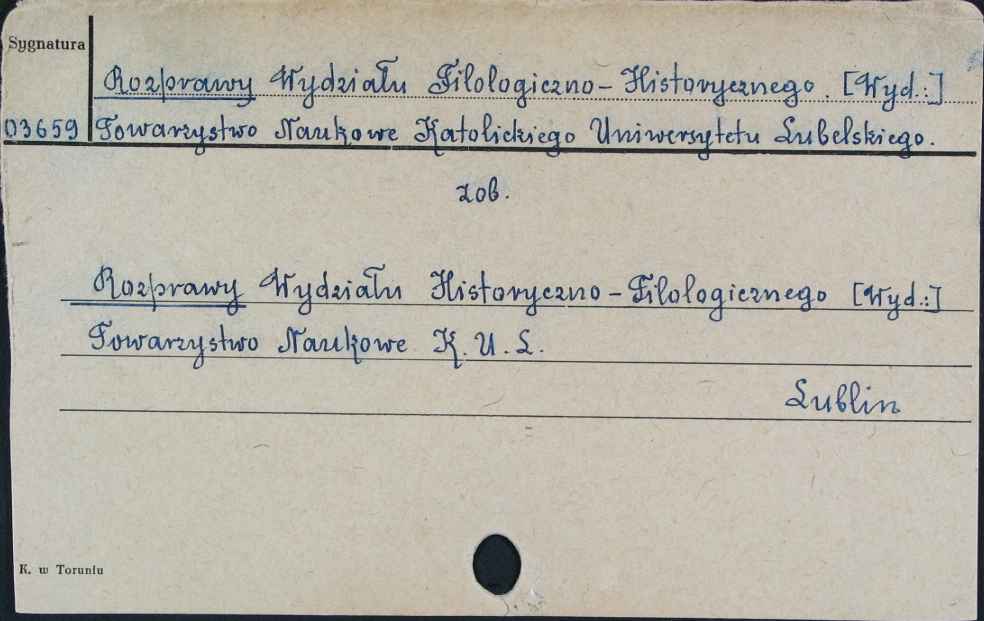 Sygnatura
Rozprawy Wydziału Filologiczno-Historycznego. [Wyd.:]
03659 Towarzystwo Naukowe Katolickiego Uniwersytetu Lubelskiego.
zob.
Rozprawy Wydziału Historyczno-Filologicznego [Wyd.:]
Towarzystwo Naukowe K.U.L.
Lublin
K. w Toruniu